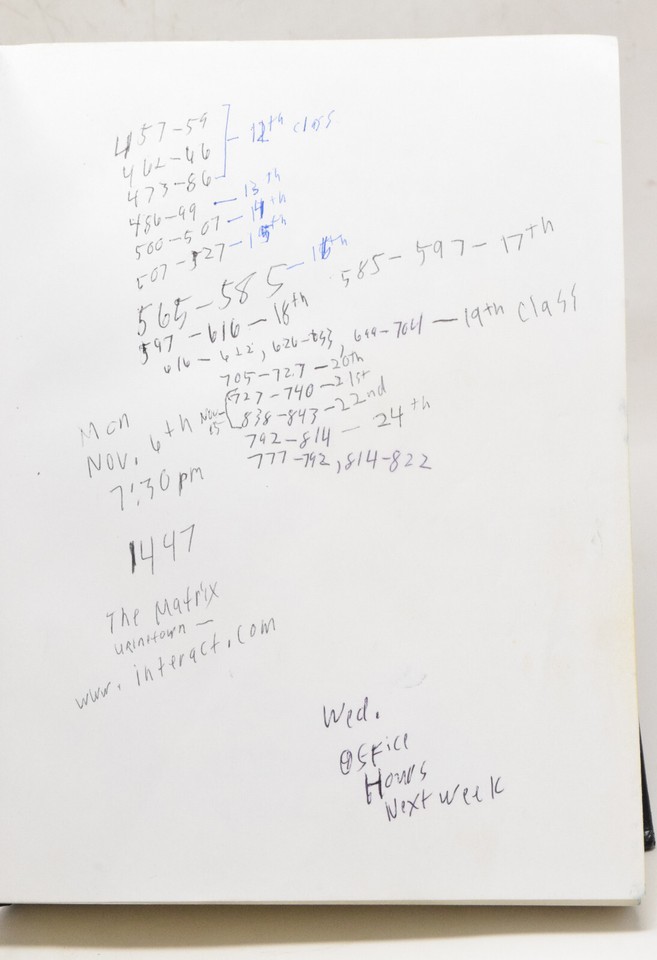 457-59
462-46
473-86 - 12th class
486-99 - 13th
500-507 - 14th
507-527 - 15th
565-585 - 16th
585-597-17th
597-616-18th
616-622, 626-633, 699-704 - 19th class
705-727-20th
Nov. 15
727-740-21st
838-843-22nd
792-814 - 24th
777-792, 814-822
Mon
Nov. 6th
7:30 pm
1447
The Matrix
www.interact.com
Wed.
Office
Hours
Next Week